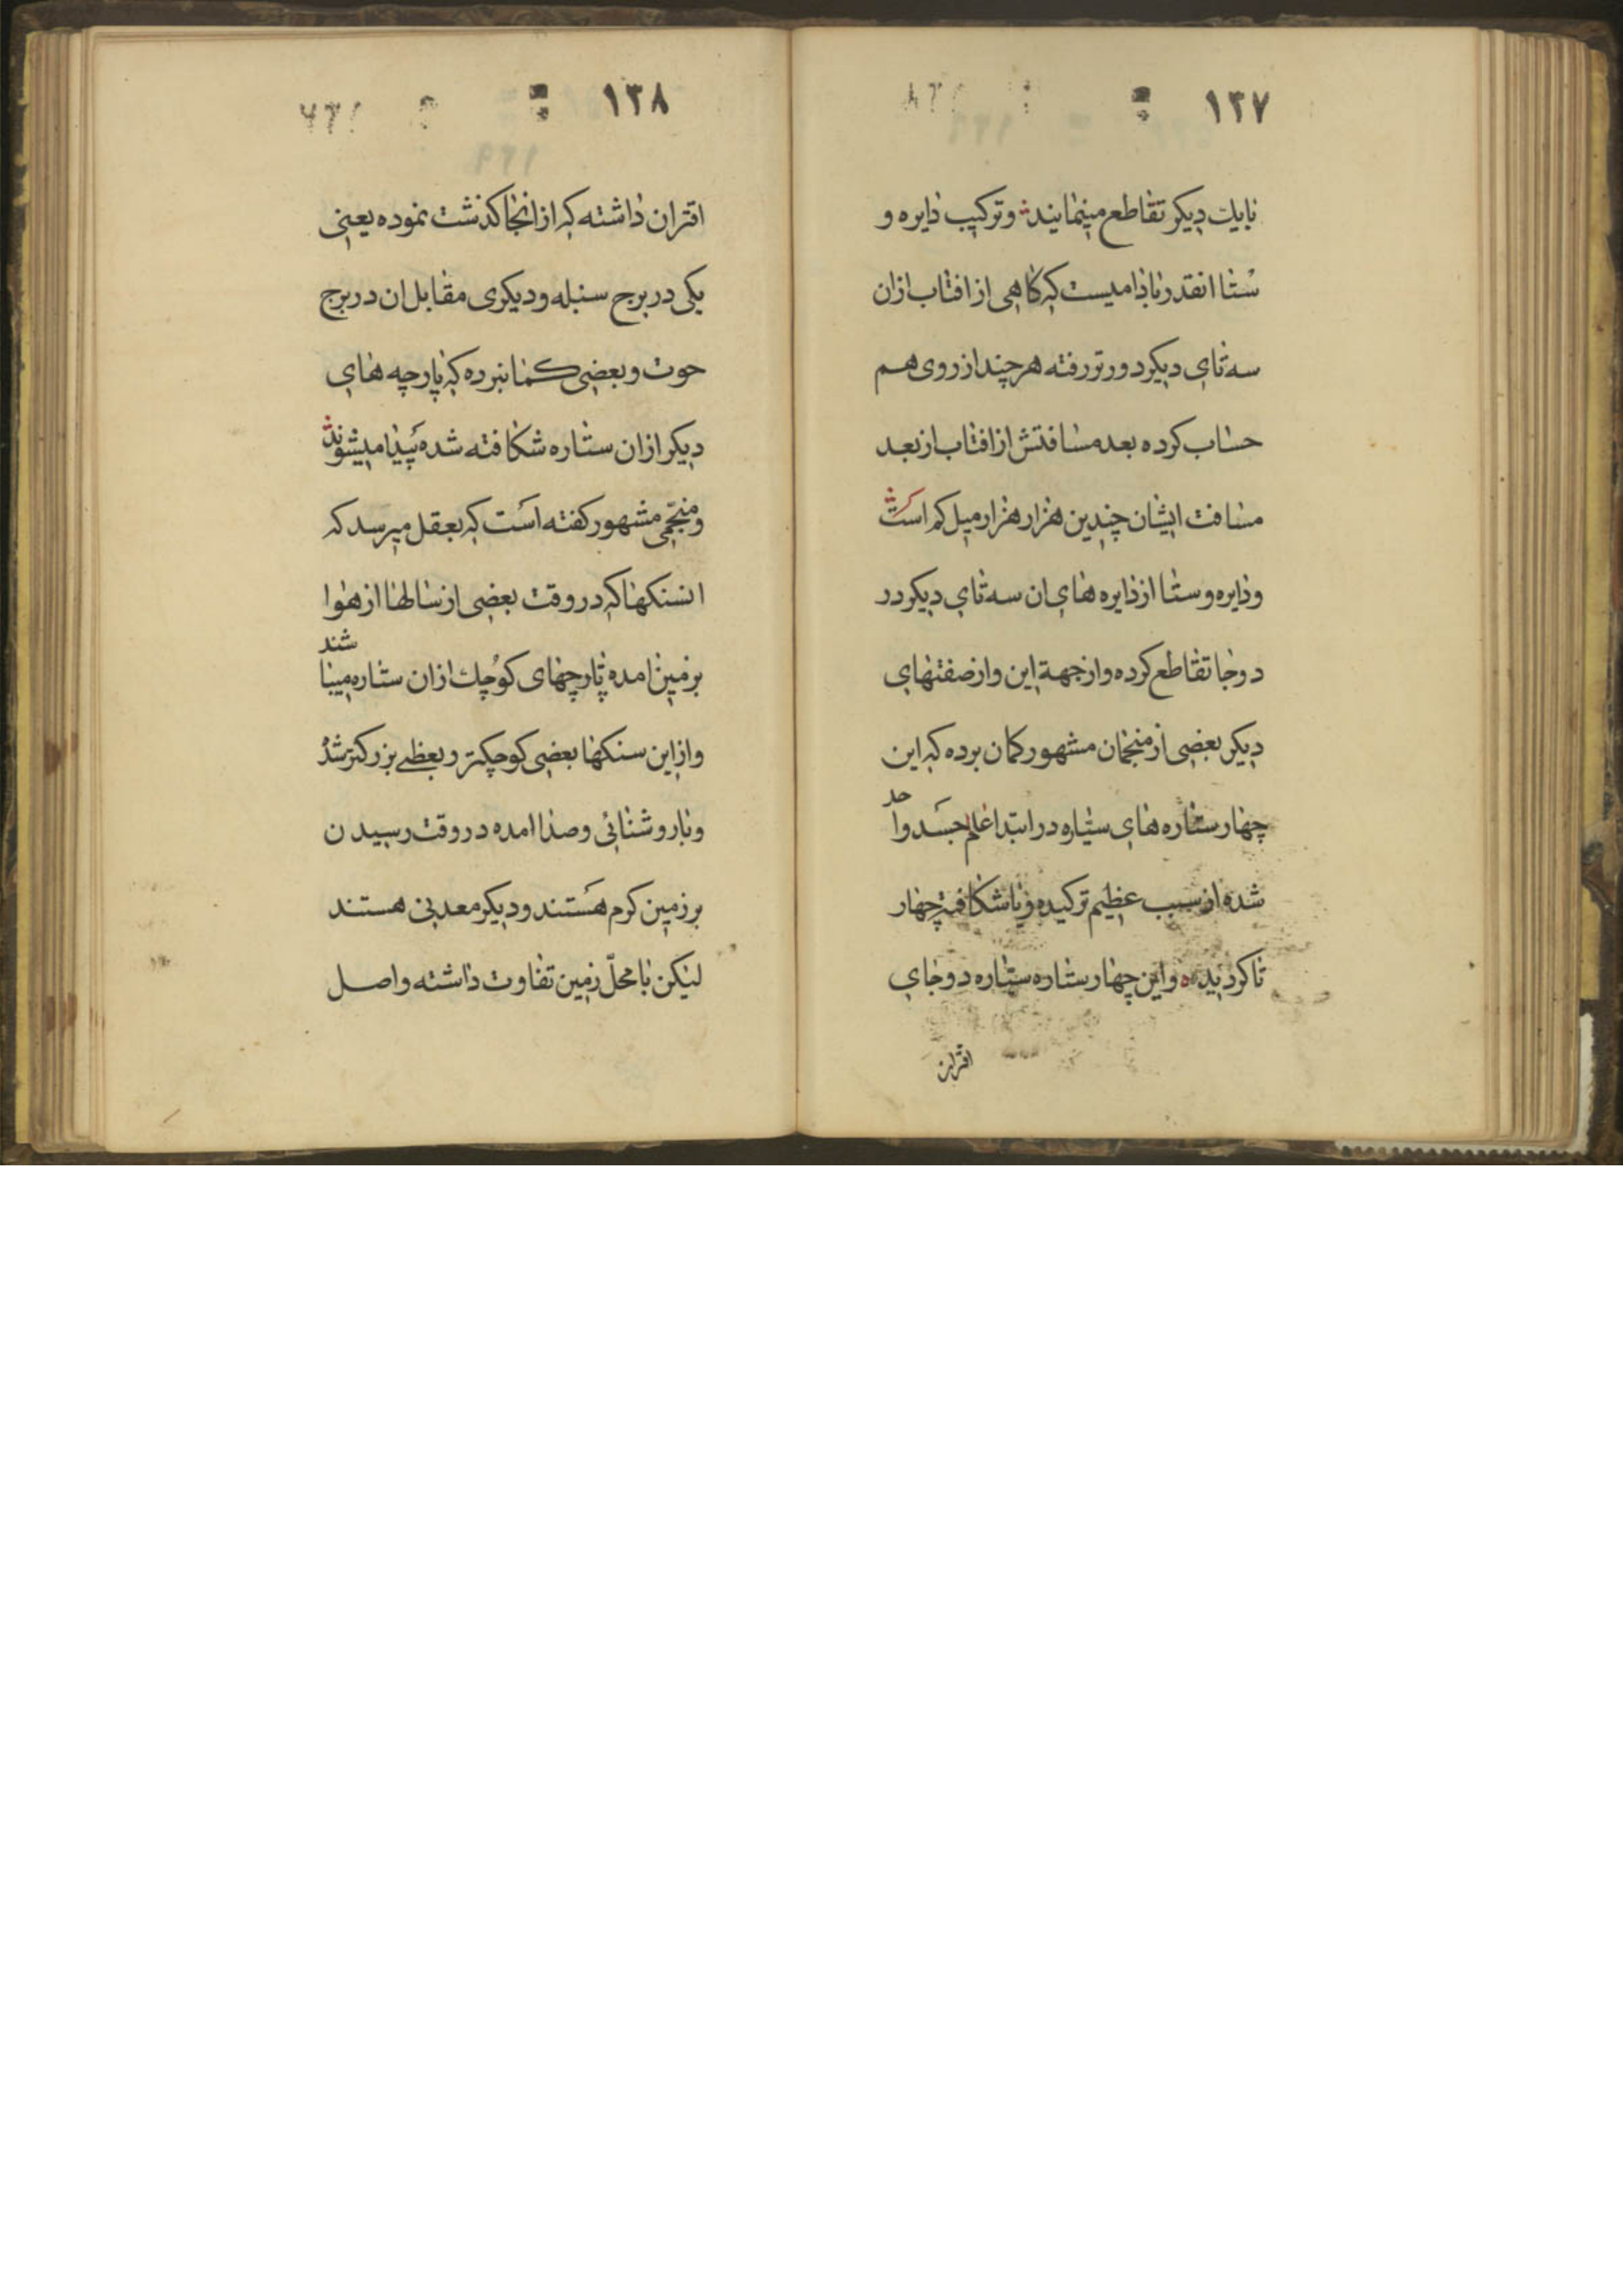 ۱۳۷
بایك دیکر تقاطع مینمایند وترکیب دایره و
ستا انقدر بادامیست که کاهی از افتاب ازان
سه تای دیکر دورتر رفته هرچند از روی هم
حساب کرده بعد مسافتش از افتاب از بعد
مسافت ایشان چندین هزار هزار میل کم است
ودایره وستا از دایره های ان سه تای دیکر در
دوجا تقاطع کرده واز جهة این واز صفتهای
دیکر بعضی از منجمان مشهور کمان برده که این
چهار ستاره های سیّاره در ابتدا جسد واحد
شده از سبب عظیم ترکیده ویا شکافته چهار
تا کردیده واین چهار ستاره سیّاره دوجای
اقتران
۱۳۸
اقتران داشته که از انجا کذشت نموده یعنی
یکی در برج سنبله ودیکری مقابل ان در برج
حوت وبعضی کمان برده که پارچه های
دیکر ازان ستاره شکافته شده پیدا میشوند
ومنجّمی مشهور کفته است که بعقل میرسد که
انسنکها که در وقت بعضی از سالها از هوا
بر زمین امده پارچهای کوچك ازان ستاره میباشند
واز این سنکها بعضی کوچکتر وبعظی بزرکتر شد
وبا روشنائی وصدا امده در وقت رسیدن
بر زمین کرم هستند ودیکر معدنی هستند
لیکن با محلّ زمین تفاوت داشته واصل